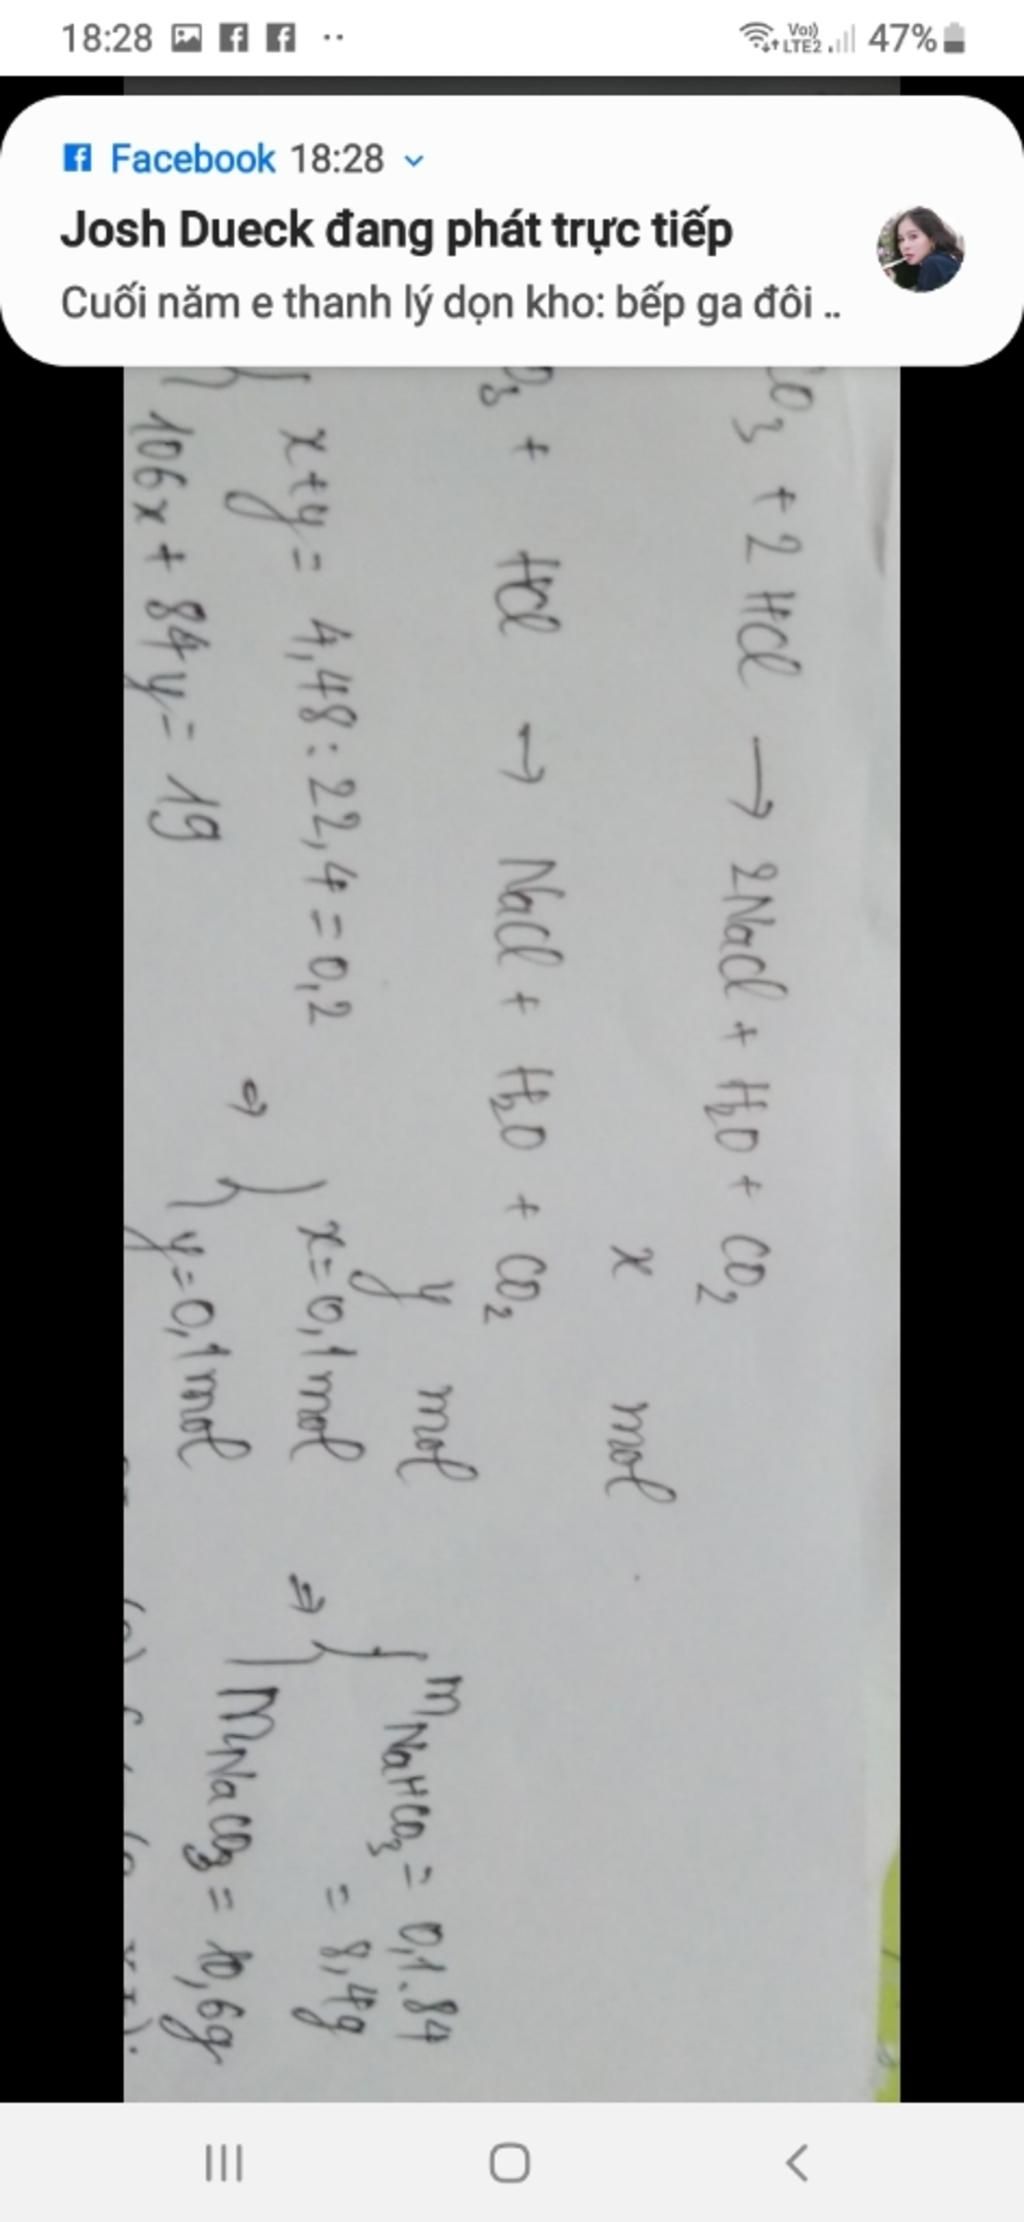 18:28
Voi) LTE2 47%
Facebook 18:28
Josh Dueck đang phát trực tiếp
Cuối năm e thanh lý dọn kho: bếp ga đôi ..
CO3 + 2 HCl → 2NaCl + H2O + CO2
x mol
O3 + HCl → NaCl + H2O + CO2
y mol
x+y = 4,48 : 22,4 = 0,2
106x + 84y = 19
⇒ x = 0,1 mol
y = 0,1 mol
⇒ mNaHCO3 = 0,1.84
= 8,4g
mNaCO3 = 10,6g